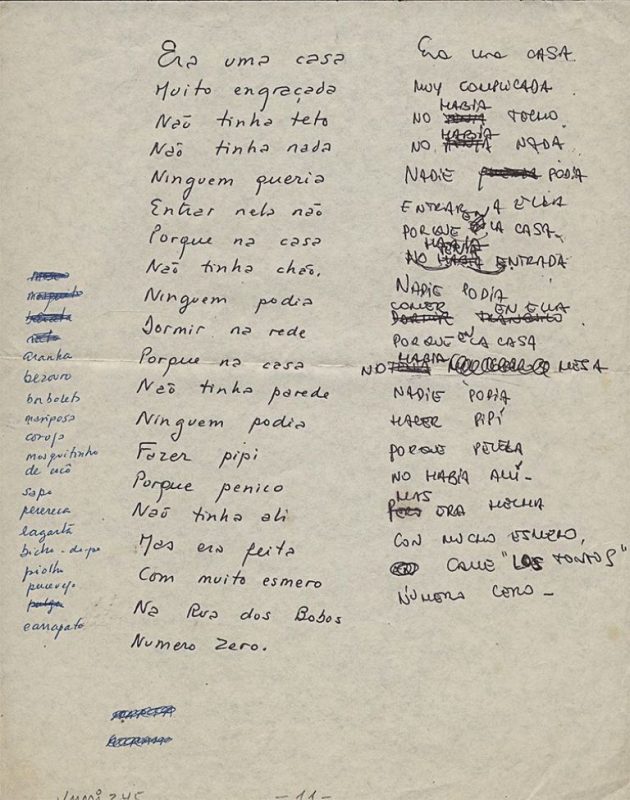 Era uma casa
Muito engraçada
Não tinha teto
Não tinha nada
Ninguem queria
Entrar nela não
Porque na casa
Não tinha chão.
Ninguem podia
Dormir na rede
Porque na casa
Não tinha parede
Ninguem podia
Fazer pipi
Porque penico
Não tinha ali
Mas era feita
Com muito esmero
Na Rua dos Bobos
Numero Zero.
Era una CASA
MUY COMPLICADA
HABIA
NO TECHO
HABIA
NO NADA
NADIE PODIA
ENTRAR EN ELLA
PORQUE LA CASA
NO ENTRADA
NADIE PODIA
COMER EN ELLA
PORQUE LA CASA
HABIA
NO MESA
NADIE PODIA
HACER PIPÍ
PORQUE
NO HABÍA
MAS
ERA HECHA
CON MUCHO ESMERO,
CALLE "LOS TONTOS"
NÚMERO CERO -
mosquito
barata
aranha
bezouro
borboleta
mariposa
coruja
mosquitinho
de cocô
sapo
perereca
lagarta
bicho-de-pé
piolho
percevejo
pulga
carrapato
- 11 -